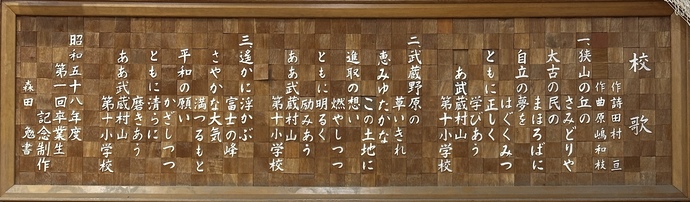 校歌
作詩 田村 亘
作曲 原嶋和枝
一 狭山の丘の
さみどりや
太古の民の
まほろばに
自立の夢を
はぐくみつ
ともに正しく
学びあう
あゝ武蔵村山
第十小学校
二 武蔵野原の
草いきれ
恵みゆたかな
この土地に
進取の想い
燃やしつつ
ともに明るく
励みあう
ああ武蔵村山
第十小学校
三 遙かに浮かぶ
富士の峰
さやかな大気
満つるもと
平和の願い
かざしつつ
ともに清らに
磨きあう
ああ武蔵村山
第十小学校
昭和五十八年度
第一回卒業生
記念制作
森田 書